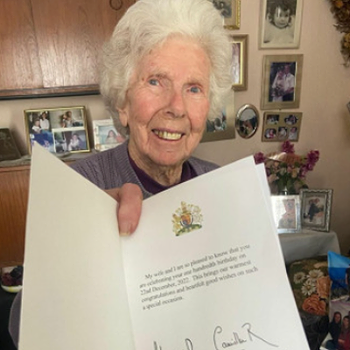 My wife and I are so pleased to know that you
are celebrating your one hundredth birthday on
22nd December, 2022. This brings our warmest
congratulations and heartfelt good wishes on such
a special occasion.
Camilla R